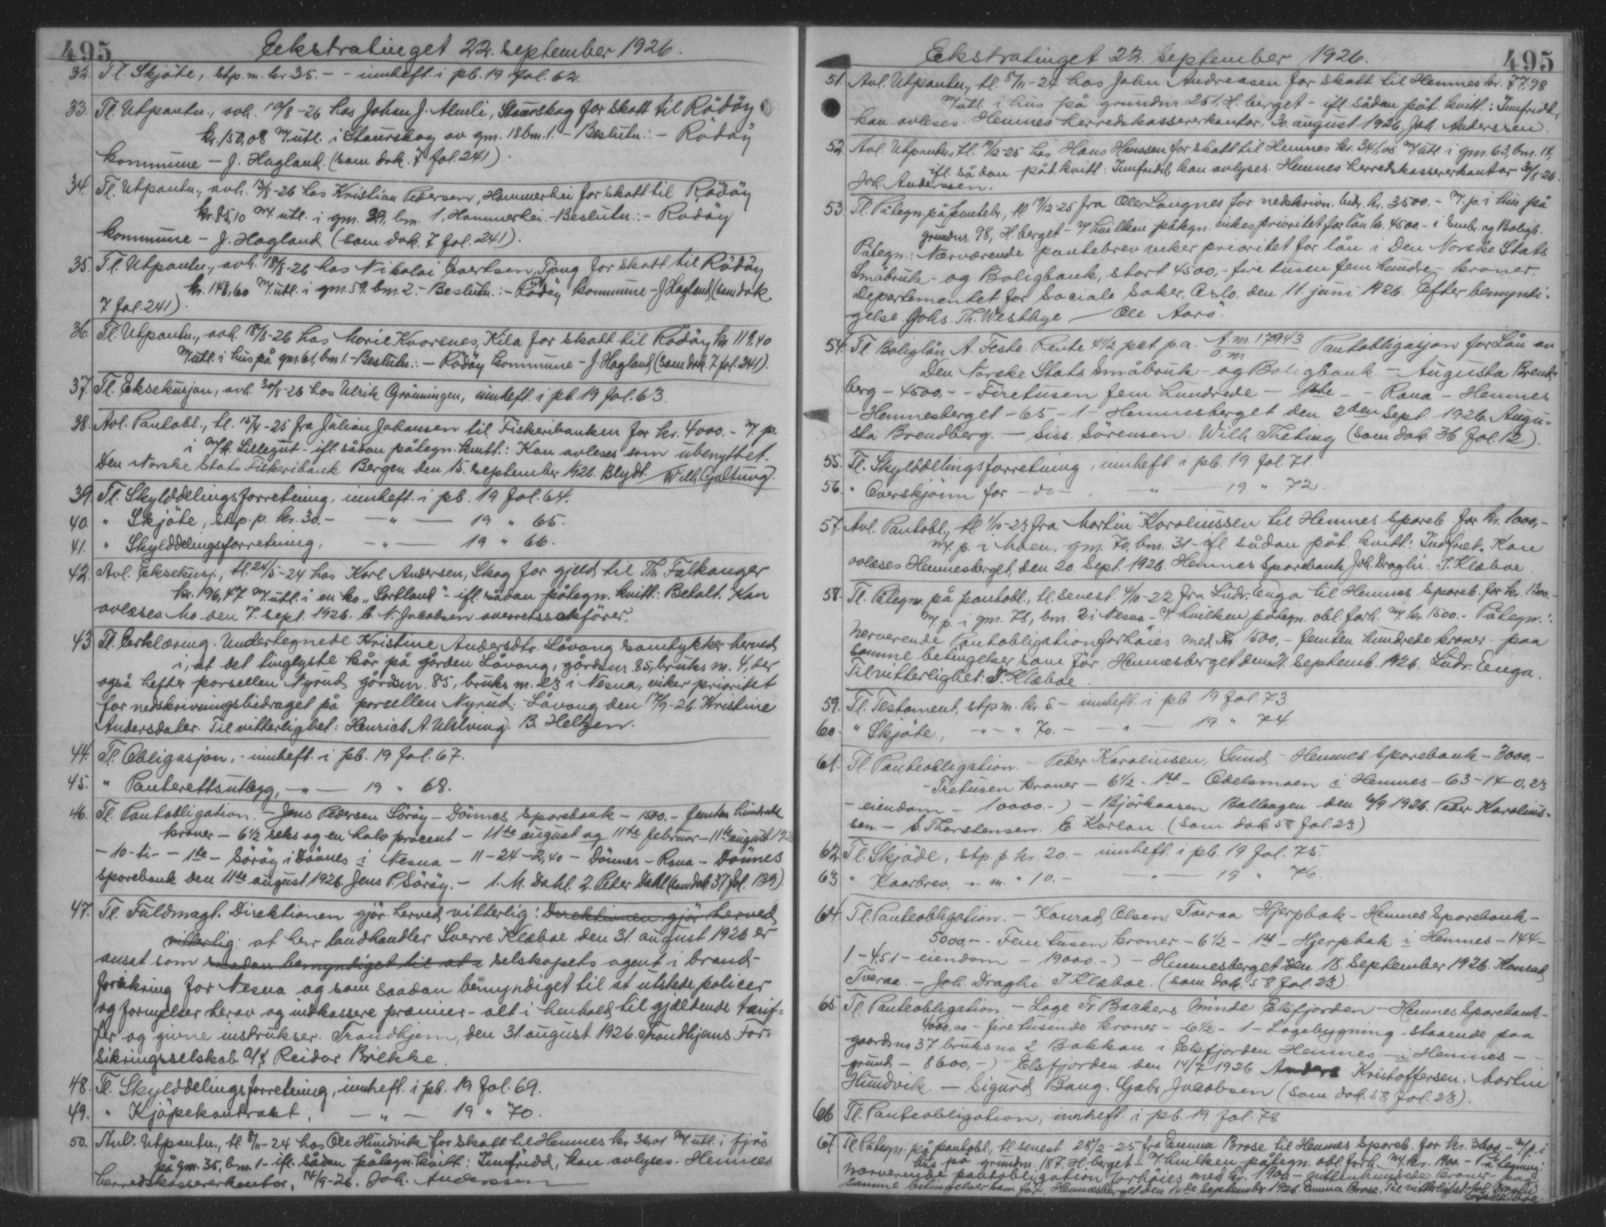 495
Ekstratinget 22. september 1926.
32. Tl. Skjøte, stp. m. kr 35.- - innheft. i pb. 19 fol. 62.
33. Tl. Utpantn., avh. 10/8-26 hos Johan J. Almli, Staurskog for skatt til Rödöy
kr. 158,08 m/utl. i Staurskog av gm. 18 bm. 1. - Beslutn: - Rödöy
kommune - J. Hagland, (som dok. 7 fol. 241).
34. Tl. Utpantn., avh. 13/8-26 hos Kristian Pedersen, Hammerhei for skatt til Rödöy
kr. 85,10 m/ utl. i gm. 39, bm. 1, Hammerhei - Beslutn: - Rödöy
kommune - J. Hagland (som dok. 7 fol. 241).
35. Tl. Utpantn., avh. 18/8-26 hos Nikolai Evertsen, Tjong for skatt til Rödöy
kr. 148,60 m/utl. i gm. 59, bm. 2. - Beslutn.: - Rödöy kommune - J. Hagland (som dok
7 fol. 241).
36. Tl. Utpantn., avh. 18/8-26 hos Marie Kvarsnes, Kila for skatt til Rödöy kr. 119,40
m/utl. i hus på gm. 61, bm. 1. - Beslutn.: - Rödöy kommune - J. Hagland (som dok. 7 fol. 241).
37. Tl. Eksekusjon, avh. 30/8-26 hos Ulrik Grönningen, innheft. i pb 19 fol. 63.
38. Avl. Pantobl., tl. 15/7-25 fra Julian Johansen til Fiskeribanken for kr. 4000.- m/ p.
i m/k. Lillegut - ifl. sådan påtegn. kvitt: Kan avleses som ubenyttet.
Den Norske Stats Fiskeribank Bergen den 15. september 1926. Blydt. Wilh. Galtung.
39. Tl. Skylddelingsforretning, innheft. i pb. 19 fol. 64.
40. " Skjøte, stp. p. kr. 30.- - " - 19 " 65.
41. " Skylddelingsforretning, - " - 19 " 66.
42. Avl. Eksekusj., tl. 24/5-24 hos Karl Andersen, Skog for gjeld til Th. Falkanger
kr. 196,47 m/utl. i en ko "Sortland" - ifl. sådan påtegn. kvitt: Betalt. Kan
avleses. Mo den 7. sept. 1926. C. N. Jacobsen overretssakförer.
43. Tl. Erklæring. Undertegnede Kristine Andersdtr. Låvong samtykker herved
i, at det tinglyste kår på gården Låvong, gårdsn. 85, bruks n. 4, der
også hefter parsellen Nyrud, gårdsn. 85, bruks n. 23 i Nesna, viker prioritet
for nedskrivningsbidraget på parsellen Nyrud. Låvong den 17/9-26. Kristine
Andersdater. Til vitterlighet: Henrik A. Utskving. B. Heltzen.
44. Tl. Obligasjon, - innheft. i pb. 19 fol. 67.
45. " Panterettsutlegg, - " - 19 " 68.
46. Tl. Pantobligation. - Jens Pedersen Söröy - Dönnes Sparebank - 1500.- femten hundrede
kroner - 6½ seks og en halv procent - 11te august og 11te februar - 11te august 192
- 10 - ti - - 1ste - Söröy i Dönnes i Nesna - 11 - 24 - 2,40 - Dönnes - Rana - Dönnes
Sparebank den 11te august 1926. Jens P. Söröy. - 1. M. Dahl. 2. Peter Dahl (som dok. 37 fol. 139).
47. Tl. Fuldmagt. Direktionen gjör herved vitterlig: Direktionen gjör herved
vitterlig: at herr landhandler Sverre Klæboe den 31. august 1926 er
ansat som saadan bemyndiget til at selskapets agent i brand-
forsikring for Nesna og som saadan bemyndiget til at utstede policer
og fornyelser herav og indkassere præmier - alt i henhold til gjældende tarif-
fer og givne instrukser. Trondhjem, den 31 august 1926. Trondhjems For-
sikringsselskab A/S. Reidar Brekke.
48. Tl. Skylddelingsforretning, innheft. i pb. 19 fol. 69.
49. " Kjöpekontrakt, - " - 19 " 70.
50. Avl. Utpantn., tl. 8/11-24 hos Ole Hundvik for skatt til Hemnes kr. 36,01 m/ utl. i fjös
på gm. 35, bm. 1 - ifl. sådan påtegn. kvitt: Innfridd, kan avlyses. Hemnes
herredskassererkontor, 14/9-26. Joh. Anderssen
495
Ekstratinget 22. september 1926.
51. Avl. Utpantn., tl. 8/11-24 hos John Andreasen for skatt til Hemnes kr. 77,98
m/utl. i hus på grundnr 251, H. berget - ifl. sådan påt. kvitt: Innfridd,
kan avleses. Hemnes herredskassererkontor, 30. august 1926. Joh. Anderssen.
52. Avl. Utpantn., tl. 11/12-25 hos Hans Hanssen for skatt til Hemnes kr. 341,05 m/utl. i gm. 63, bm. 18,
ifl. sådan påt. kvitt: Innfridd, kan avlyses. Hemnes herredskassererkontor 30/8-26.
Joh. Anderssen.
53. Tl. Påtegn. på pantebr., tl 11/12-25 fra Ole Langnes for nedskrivn. bidr. kr. 3500.- m. p. i hus på
grundnr. 98, H. berget - m/ hvilken påtegn. vikes prioritet for lån kr. 4500.- i Småbr. og Boligb.
Påtegn.: Nærværende pantebrev viker prioritet for lån i Den Norske Stats
Småbruk- og Boligbank, stort 4500,- fire tusen fem hundre - kroner.
Departementet for Sociale Saker, Oslo, den 11 juni 1926. Efter bemyndi-
gelse. Johs. Th. Westbye - Ole Aars.
54. Tl. Boliglån A. Feste. Rente 4½ pct p.a. Pantobligasjon for Lån av
Den Norske Stats Småbruk- og Boligbank - Augusta Brend-
berg - 4500.- - Firetusen fem hundrede - 1ste - - Rana - Hemnes
- Hemnesberget - 65 - 1 - Hemnesberget den 2den Sept. 1926. Augu-
sta Brendberg. - Siss. Sörensen. Wilh. Theting (som dok. 36 fol. 12).
55. Tl. Skylddelingsforretning, innheft. i pb. 19 fol. 71.
56. " Overskjönn for - do - - " - 19 " 72.
57. Avl. Pantobl., tl. 1/10-23 fra Martin Karoliussen til Hemnes Spareb. for kr. 1000,-
m/p. i Moen, gm. 70, bm. 31 - ifl. sådan påt. kvitt: Innfriet. Kan
avleses. Hemnesberget, den 20. Sept. 1926. Hemnes Sparebank Joh. Draghi. S. Klæboe.
58. Tl. Påtegn. på pantobl., tl. senest 4/10-22 fra Ludv. Enga til Hemnes Spareb. for kr. 1200.-
m/ p. i gm. 78, bm. 2 i Nesna - m/ hvilken påtegn. obl. forh. m/ kr. 1500.- Påtegn.:
Nerverende Pantobligation forhöies med kr. 1500,- femten hundrede kroner - paa
samme betingelser som för. Hemnesberget den 21. septemb. 1926. Ludv. Enga.
Til vitterlighet: S. Klæboe
59. Tl. Testament, stp m. kr. 6.- innheft i pb 19 fol 73
60. " Skjøte, - " - " 70.- - " 19 " 74
61. Tl. Panteobligation. - Peder Karoliusen, Sund - Hemnes Sparebank - 3000,-
- Tretusen kroner - 6½ - 1ste - Odelsmoen i Hemnes - 63 - 14 - 0,23
- eiendom - 10000.-) - Bjørkaasen Balleagen den 6/9 1926. Peder Karolius-
sen. - S. Thorstensen. E. Karlson. (Som dok. 58 fol 23)
62. Tl. Skjøte, stp. p. kr. 20.- innheft i pb. 19 fol. 75.
63. " Kaarbrev, " m. " 10.- - " - 19 " 76.
64. Tl. Panteobligation. - Konrad Olsen Tveraa Hjerpbak - Hemnes Sparebank -
5000,-. Fem tusen kroner - 6½ - 1ste - Hjerpbak i Hemnes - 144 -
1 - 4.51 - eiendom - 19000.-) - Hemnesberget den 18. September 1926. Konrad
Tveraa. - Joh. Draghi. S. Klæboe. (som dok. 58 fol. 23).
65. Tl. Panteobligation. - Loge Fr. Backers Minde Elsfjorden - Hemnes Sparebank -
4000,00 - fire tusende kroner - 6½ - 1 - Logebygning staaende paa
gaards no 37 bruks no 2 Bakkan i Elsfjorden Hemnes - i Hemnes - -
grund - 8600,-) - Elsfjorden den 14/7 1926. Anders Kristoffersen. Martin
Hundvik. - Sigurd Bang. Gabr. Jacobsen (som dok. 58 fol. 23).
66 Tl. Panteobligation, innheft. i pb. 19 fol. 78
67 Tl. Påtegn. på pantobl., tl. senest 28/2-25 fra Emma Brose til Hemnes Spareb. for kr. 3800 - m/p. i
hus på grundnr. 187, H. berget - m/ hvilken påtegn. obl. forh. m/ kr. 1900 - Påtegning:
Nærværende pantobligation forhöies med kr. 1900 - nittenhundrede kroner paa
samme betingelser som för. Hemnesberget den 11te September 1926. Emma Brose. Til vitterlighed: Joh. Draghi